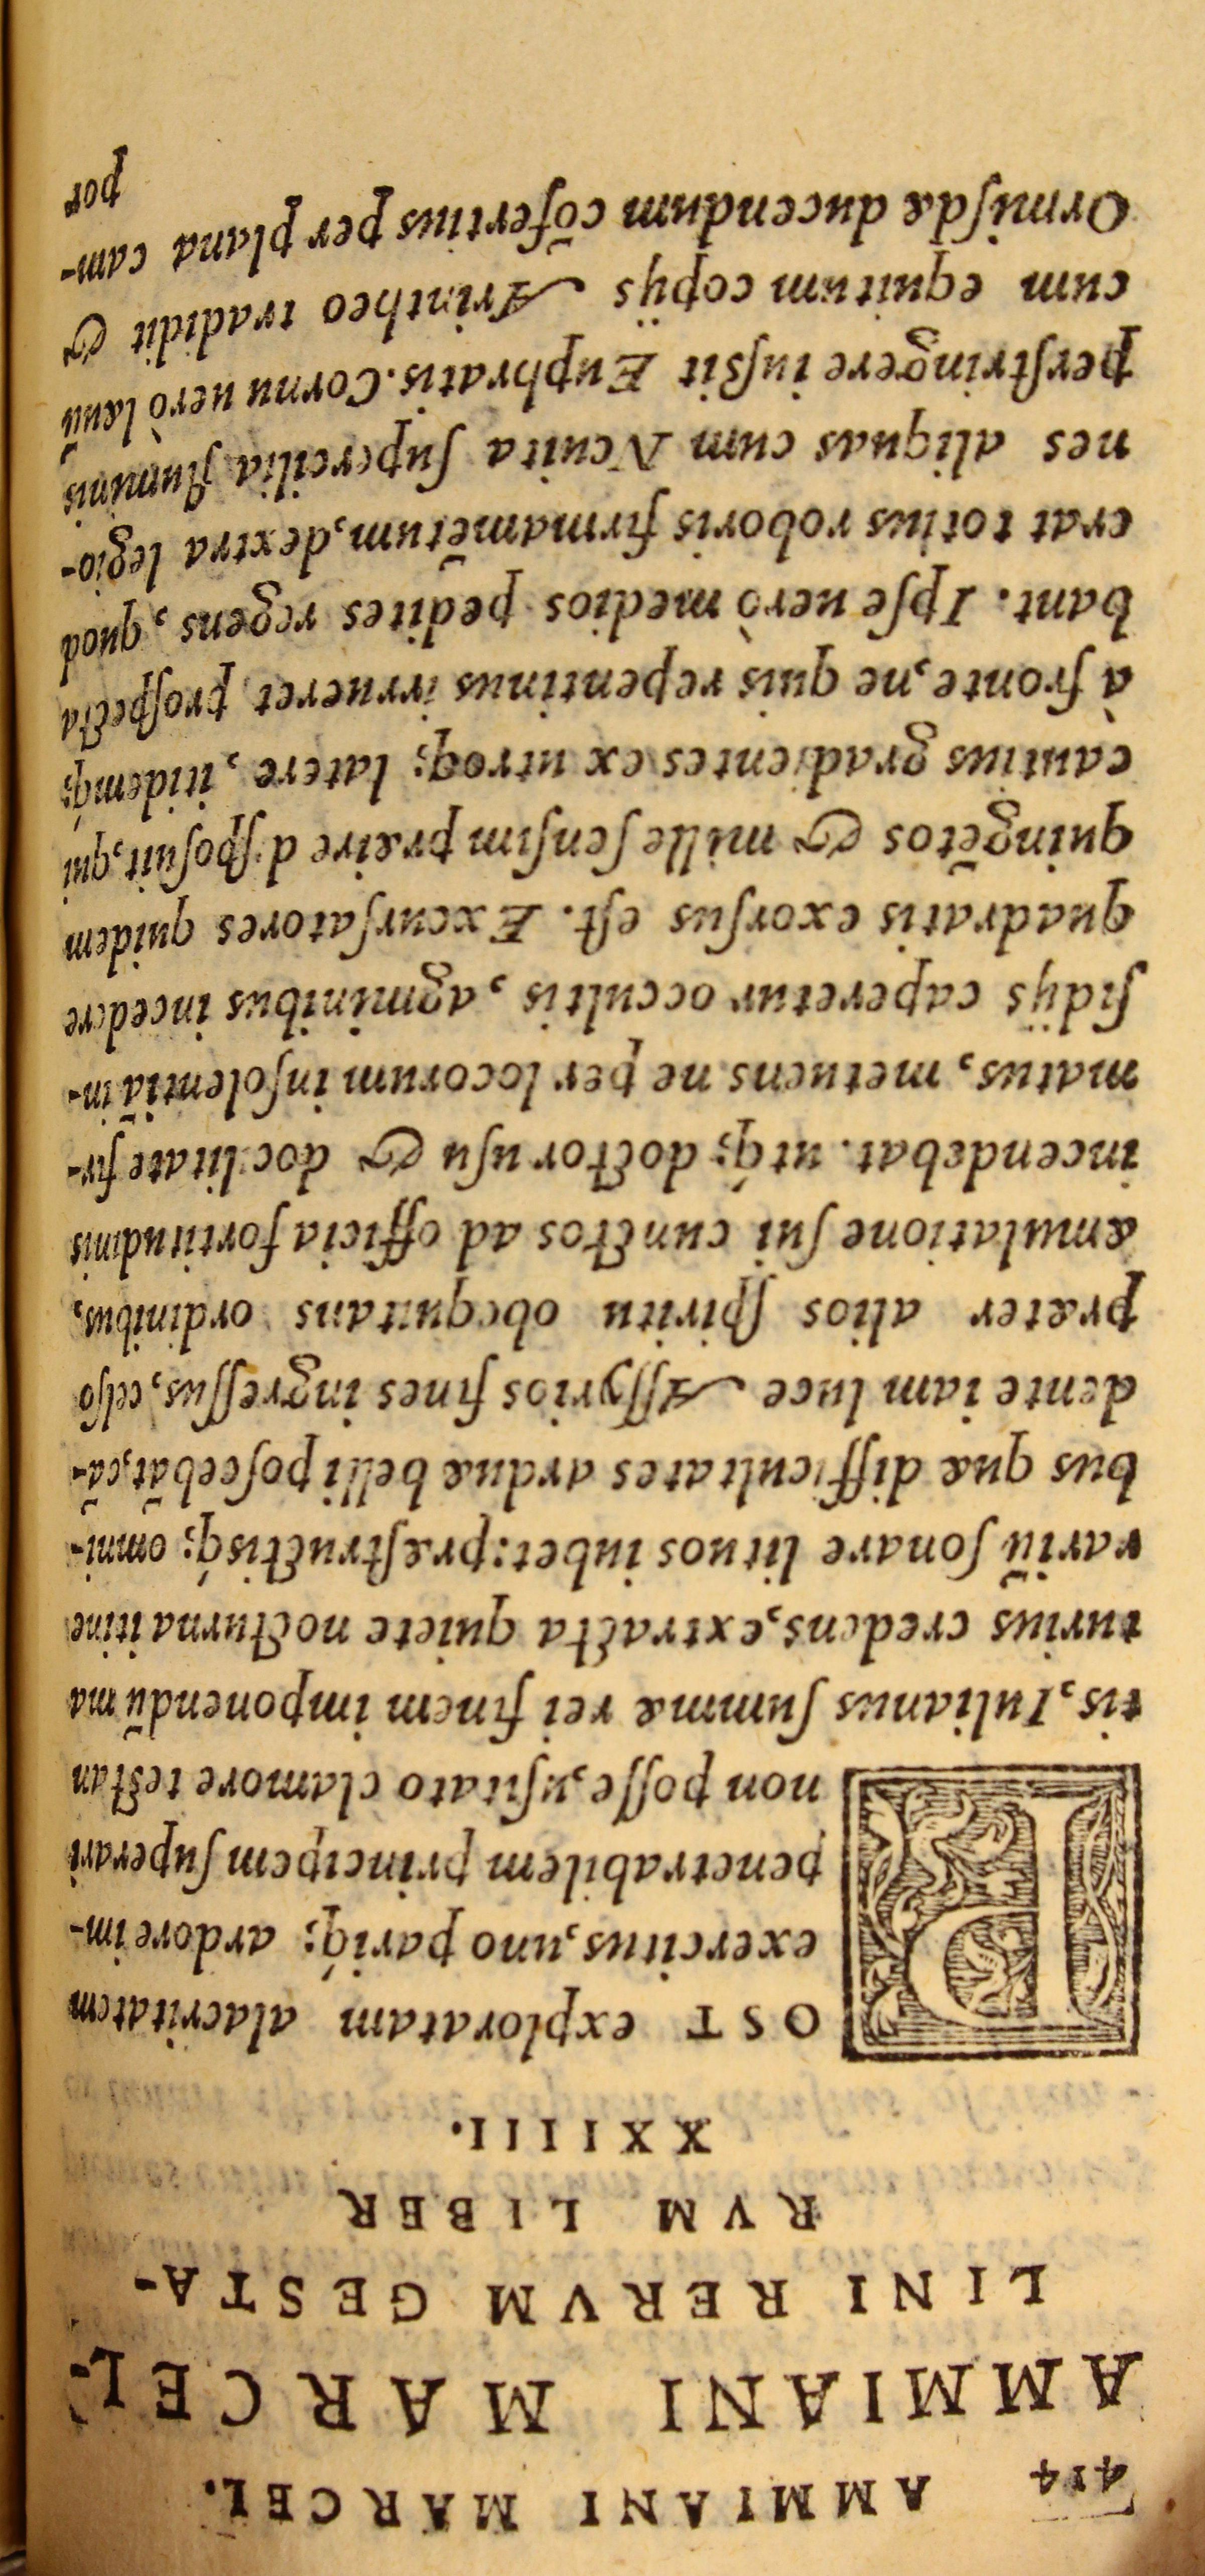 414 AMMIANI MARCEL.
AMMIANI MARCEL-
LINI RERVM GESTA-
RVM LIBER
XXIIII.
POST exploratam alacritatem
exercitus, uno pariq́; ardore im-
penetrabilem principem ſuperari
non poſſe, uſitato clamore teſtan
tis, Iulianus ſummæ rei finem imponendũ ma
turius credens, extracta quiete nocturna itine
rariũ ſonare lituos iubet: præſtructisq́; omni-
bus quæ difficultates arduæ belli poſcebãt, cã-
dente iam luce Aſſyrios fines ingreſſus, celſo
præter alios ſpiritu obequitans ordinibus,
æmulatione ſui cunctos ad officia fortitudinis
incendebat. utq́; doctor uſu & docilitate fir-
matus, metuens ne per locorum inſolentiã in-
ſidijs caperetur occultis, agminibus incedere
quadratis exorſus eſt. Excurſatores quidem
quingẽtos & mille ſenſim præire diſpoſuit, qui
cautius gradientes ex utroq; latere, itidemq́;
à fronte, ne quis repentinus irrueret, proſpecta
bant. Ipſe uerò medios pedites regens, quod
erat totius roboris firmamẽtum, dextra legio-
nes aliquas cum Neuita ſupercilia fluminis
perſtringere iuſsit Euphratis. Cornu uerò læuũ
cum equitum copijs Arintheo tradidit &
Ormiſdæ ducendum cõfertius per plana cam-
por